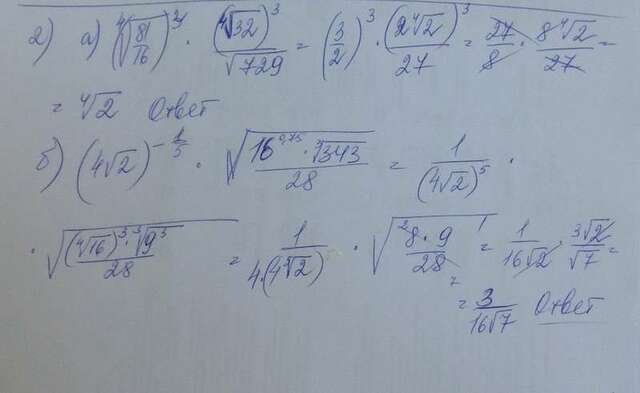 2) а) (⁴√(81/16))³ · (⁴√32)³/√729 = (3/2)³ · (2⁴√2)³/27 = 27/8 · 8⁴√2/27 =
= ⁴√2 Ответ
б) (4√2)^(-1/5) · √(16^0,75 · ³√343 / 28) = 1/(4√2)⁵ ·
· √((⁴√16)³ · ³√9³ / 28) = 1/(4·(4³√2)) · √(8·9/28) = 1/(16√2) · 3√2/√7 =
= 3/(16√7) Ответ